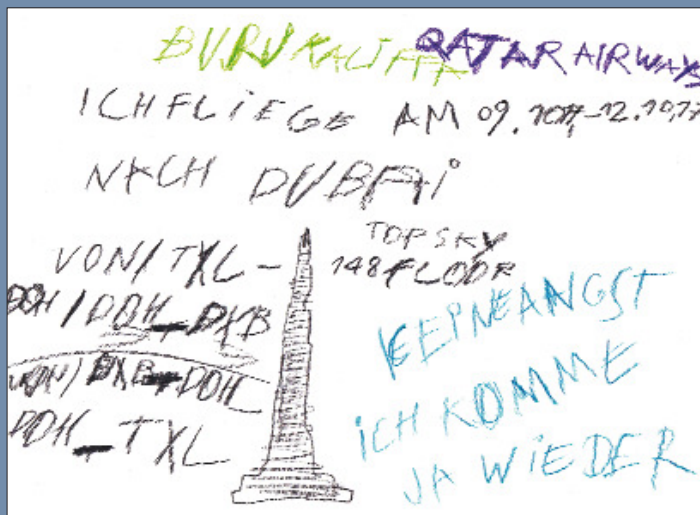 BURJ KALIFFF QATAR AIRWAYS
ICH FLIEGE AM 09.1017-12.10,17
NACH DUBAI
TOP SKY
148 FLOOR
VON/TXL-
DOH/DOH_DXB
VON/DXB-DOH
DOH_TXL
KEINE ANGST
ICH KOMME
JA WIEDER